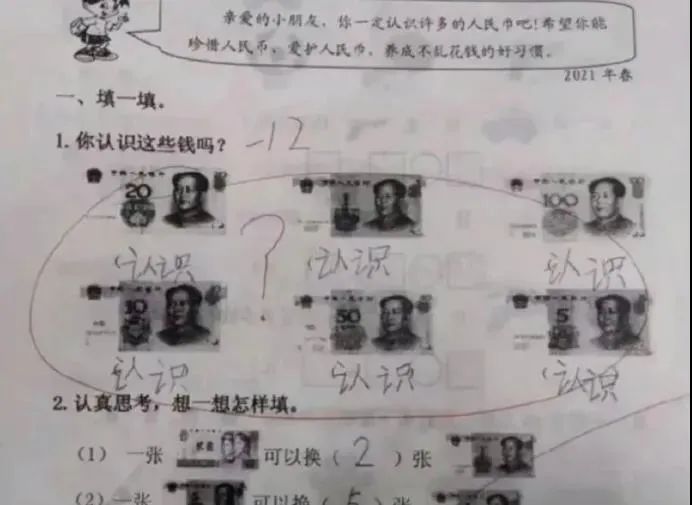 亲爱的小朋友，你一定认识许多的人民币吧！希望你能
珍惜人民币，爱护人民币，养成不乱花钱的好习惯。
2021年春
一、填一填。
1. 你认识这些钱吗？ -12
20 1 100
?
认识 认识 认识
10 50 5
认识 认识 认识
2. 认真思考，想一想怎样填。
(1) 一张 贰圆 可以换（ 2 ）张
(2) 一张 可以换（ 5 ）张